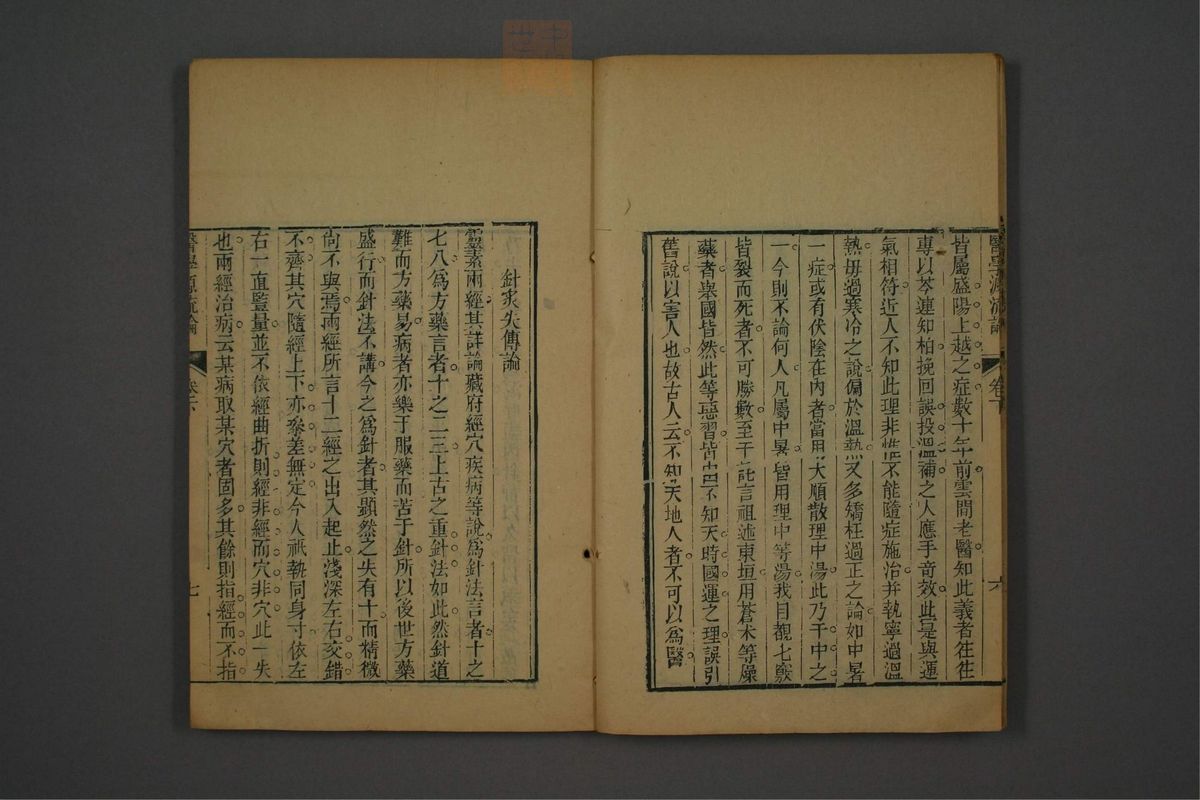 醫學源流論 卷下 六
皆屬盛陽上越之症數十年前雲間老醫知此義者往往
專以芩連知柏挽回誤投溫補之人應手奇效此是與運
氣相符近人不知此理非惟不能隨症施治并執寧過溫
熱毋過寒冷之說偏於溫熱又多矯枉過正之論如中暑
一症或有伏陰在內者當用大順散理中湯此乃千中之
一今則不論何人凡屬中暑皆用理中等湯我目覩七竅
皆裂而死者不可勝數至于託言祖述東垣用蒼朮等燥
藥者舉國皆然此等惡習皆由不知天時國運之理誤引
舊說以害人也故古人云不知天地人者不可以為醫
針灸失傳論
靈素兩經其詳論藏府經穴疾病等說為針法言者十之
七八為方藥言者十之二三上古之重針法如此然針道
難而方藥易病者亦樂于服藥而苦于針所以後世方藥
盛行而針法不講今之為針者其顯然之失有十而精微
尚不與焉兩經所言十二經之出入起止淺深左右交錯
不齊其穴隨經上下亦參差無定今人祇執同身寸依左
右一直豎量並不依經曲折則經非經而穴非穴此一失
也兩經治病云某病取某穴者固多其餘則指經而不指
醫學源流論 七